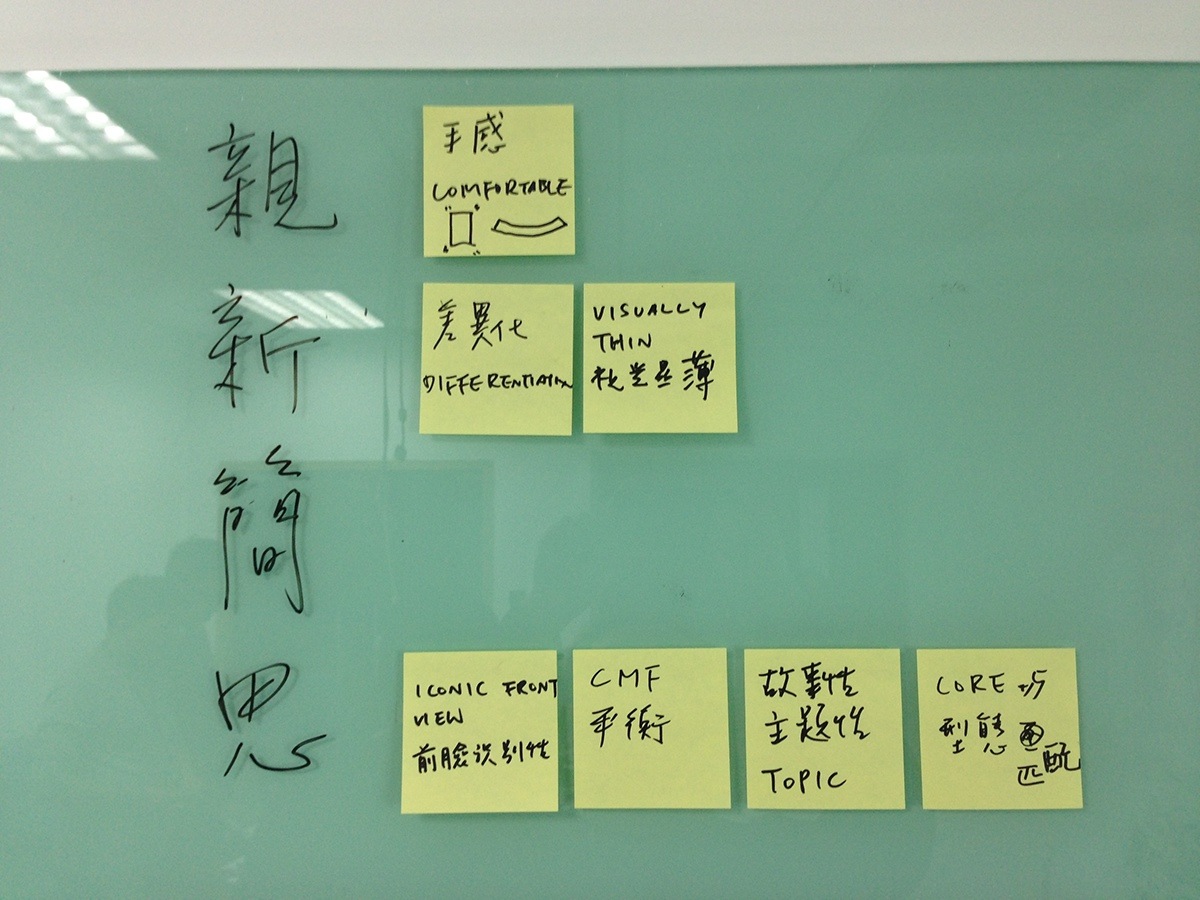 親
手感
COMFORTABLE
新
差異化
DIFFERENTIATION
VISUALLY
THIN
視覺是薄
簡
思
ICONIC FRONT
VIEW
前臉识别性
CMF
平衡
故事性
主題性
TOPIC
CORE
型態
匹配